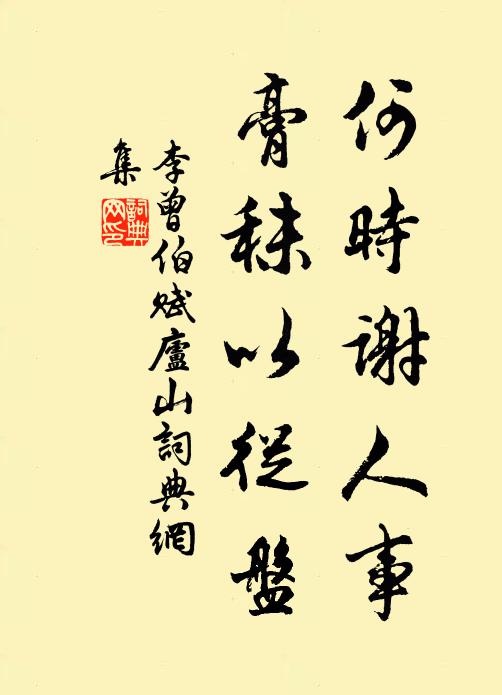 何時謝人事
膏秣以從盤
李曾伯賦廬山詞典網
集
詞典
网印